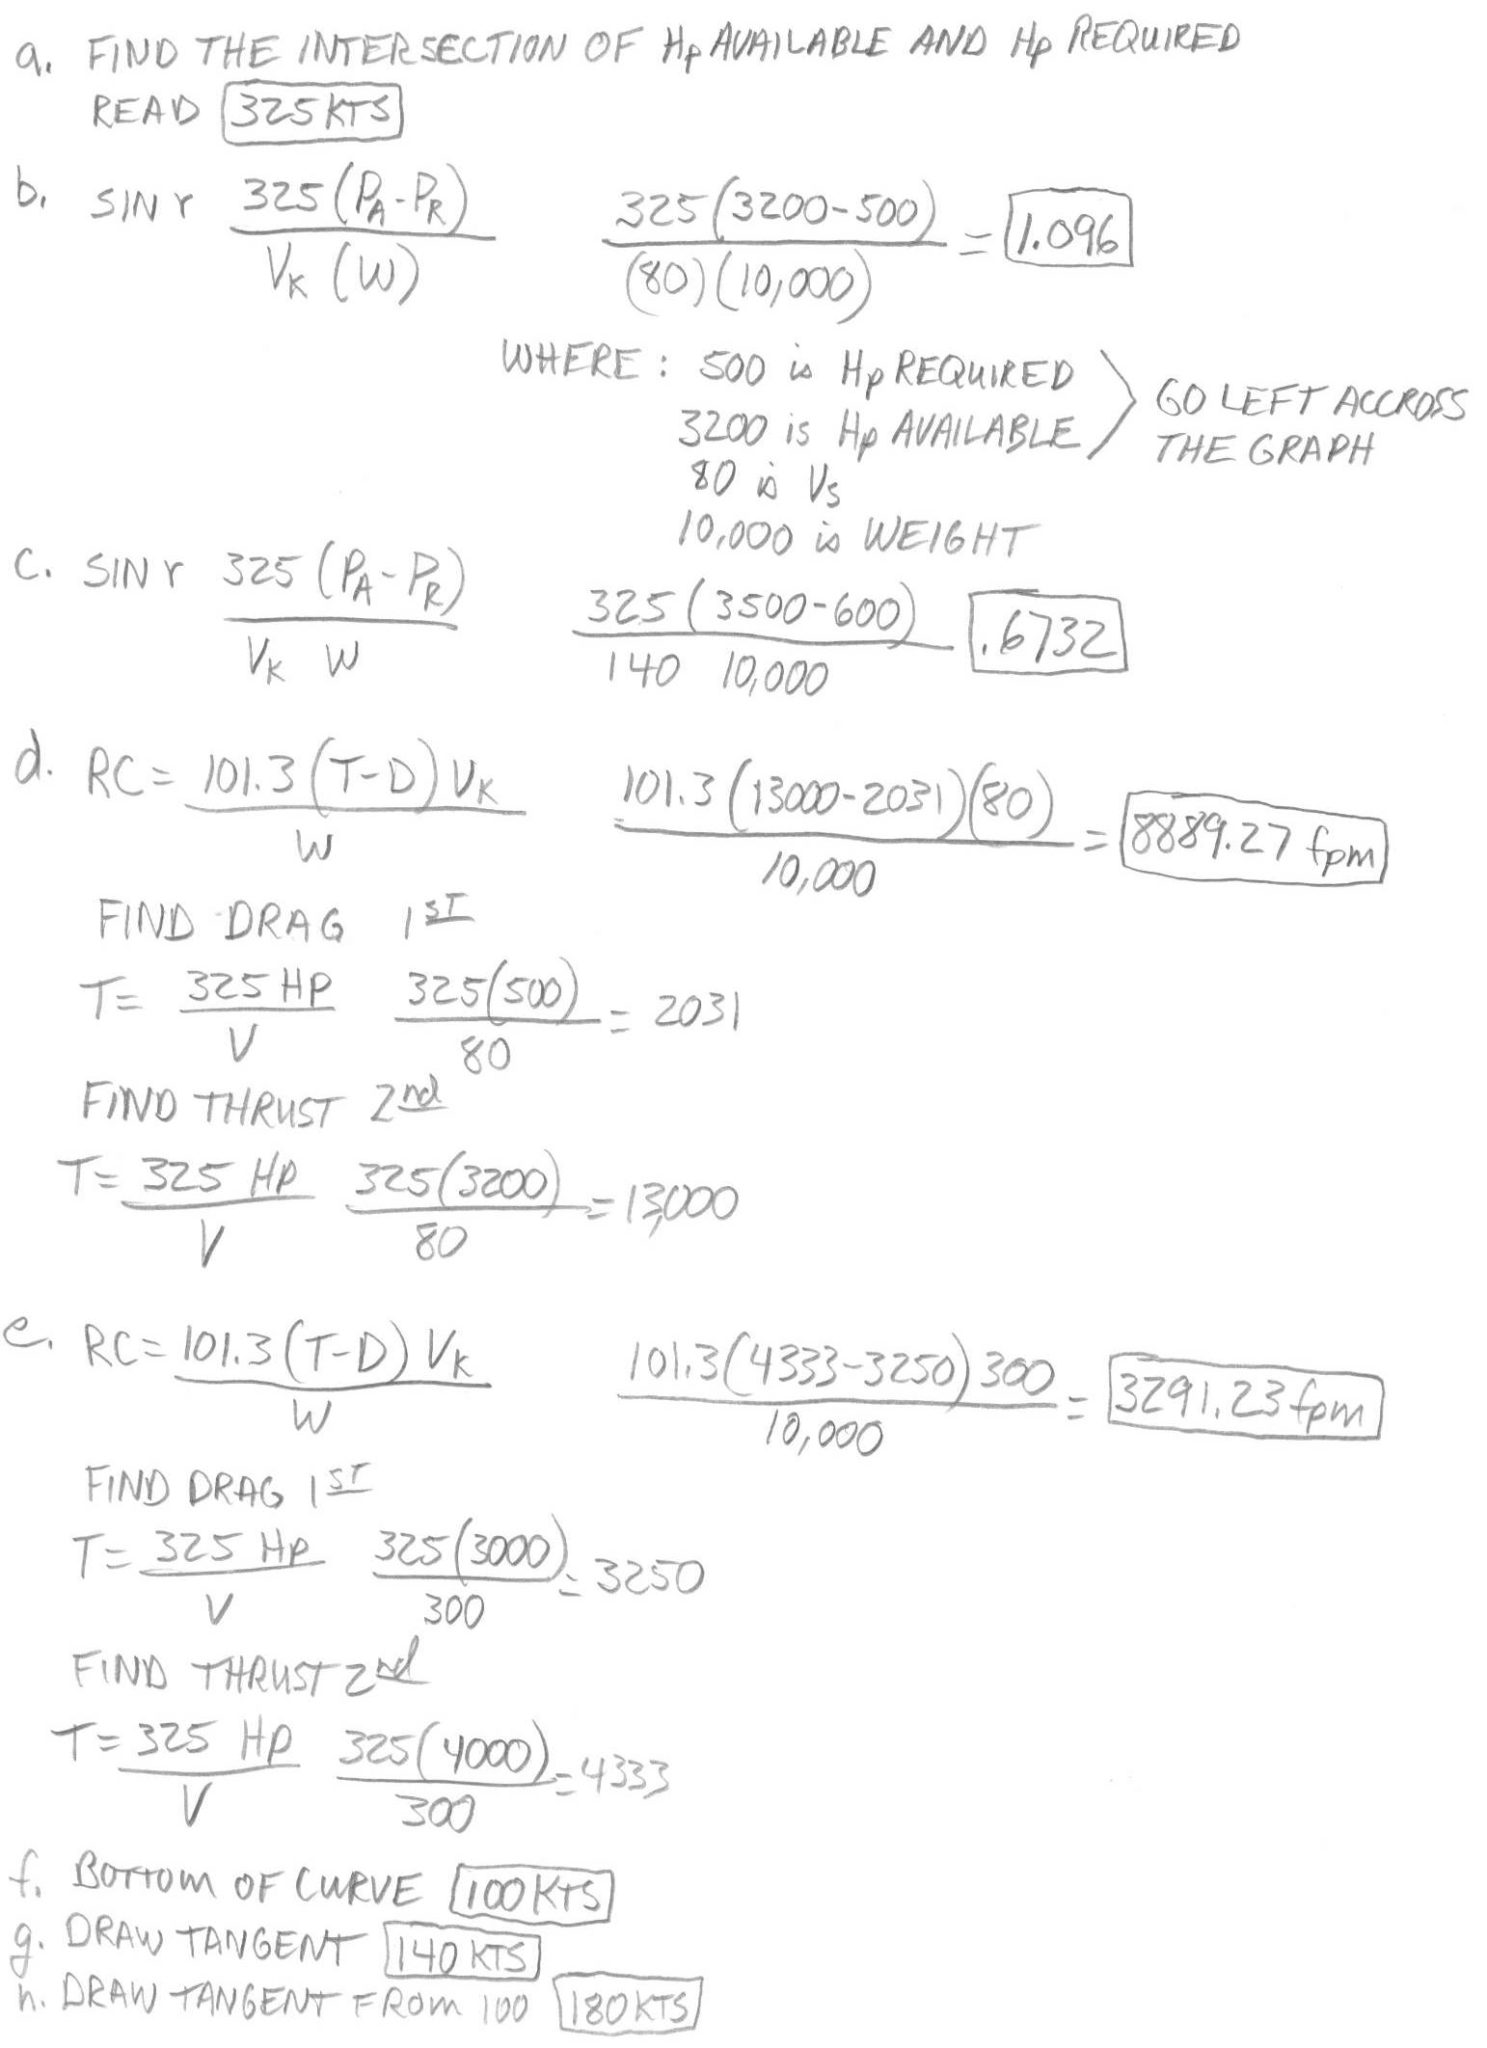 a. FIND THE INTERSECTION OF Hp AVAILABLE AND Hp REQUIRED
READ 325 KTS
b. SIN γ 325 (PA-PR) / VK (W) 325 (3200-500) / (80)(10,000) = 1.096
WHERE: 500 is Hp REQUIRED
3200 is Hp AVAILABLE
GO LEFT ACCROSS
THE GRAPH
80 is Vs
10,000 is WEIGHT
c. SIN γ 325 (PA-PR) / VK W 325 (3500-600) / 140 10,000 .6732
d. RC = 101.3 (T-D) VK / W = 101.3 (13000-2031)(80) / 10,000 = 8889.27 fpm
FIND DRAG 1ST
T = 325 HP / V 325(500) / 80 = 2031
FIND THRUST 2nd
T = 325 HP / V 325(3200) / 80 = 13,000
e. RC = 101.3 (T-D) VK / W 101.3(4333-3250) 300 / 10,000 = 3291.23 fpm
FIND DRAG 1ST
T = 325 HP / V 325(3000) / 300 = 3250
FIND THRUST 2nd
T = 325 HP / V 325(4000) / 300 = 4333
f. BOTTOM OF CURVE 100 KTS
g. DRAW TANGENT 140 KTS
h. DRAW TANGENT FROM 100 180 KTS